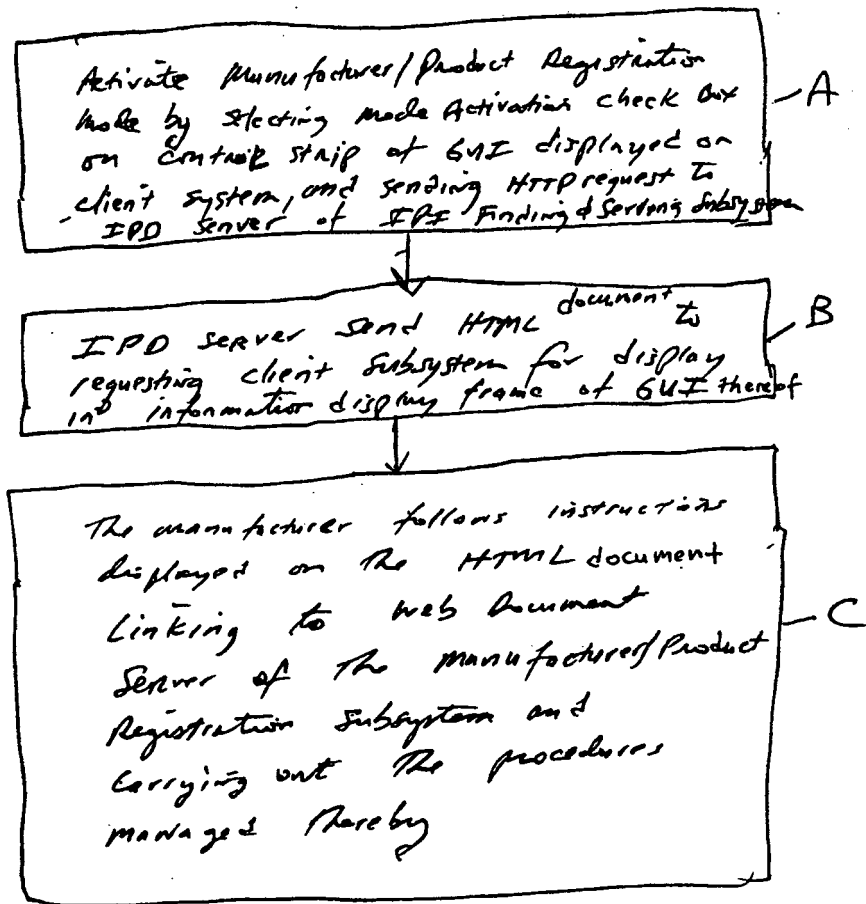 Activate Manufacturer/Product Registration
Mode by selecting Mode Activation check Box
on control strip of GUI displayed on
client system, and sending HTTP request to
IPD server of IPI Finding & Serving Subsystem
A
IPD server send HTML document to
requesting client subsystem for display
in information display frame of GUI thereof
B
The manufacturer follows instructions
displayed on the HTML document
Linking to Web Document
Server of the Manufacturer/Product
Registration Subsystem and
Carrying out the procedures
managed thereby
C